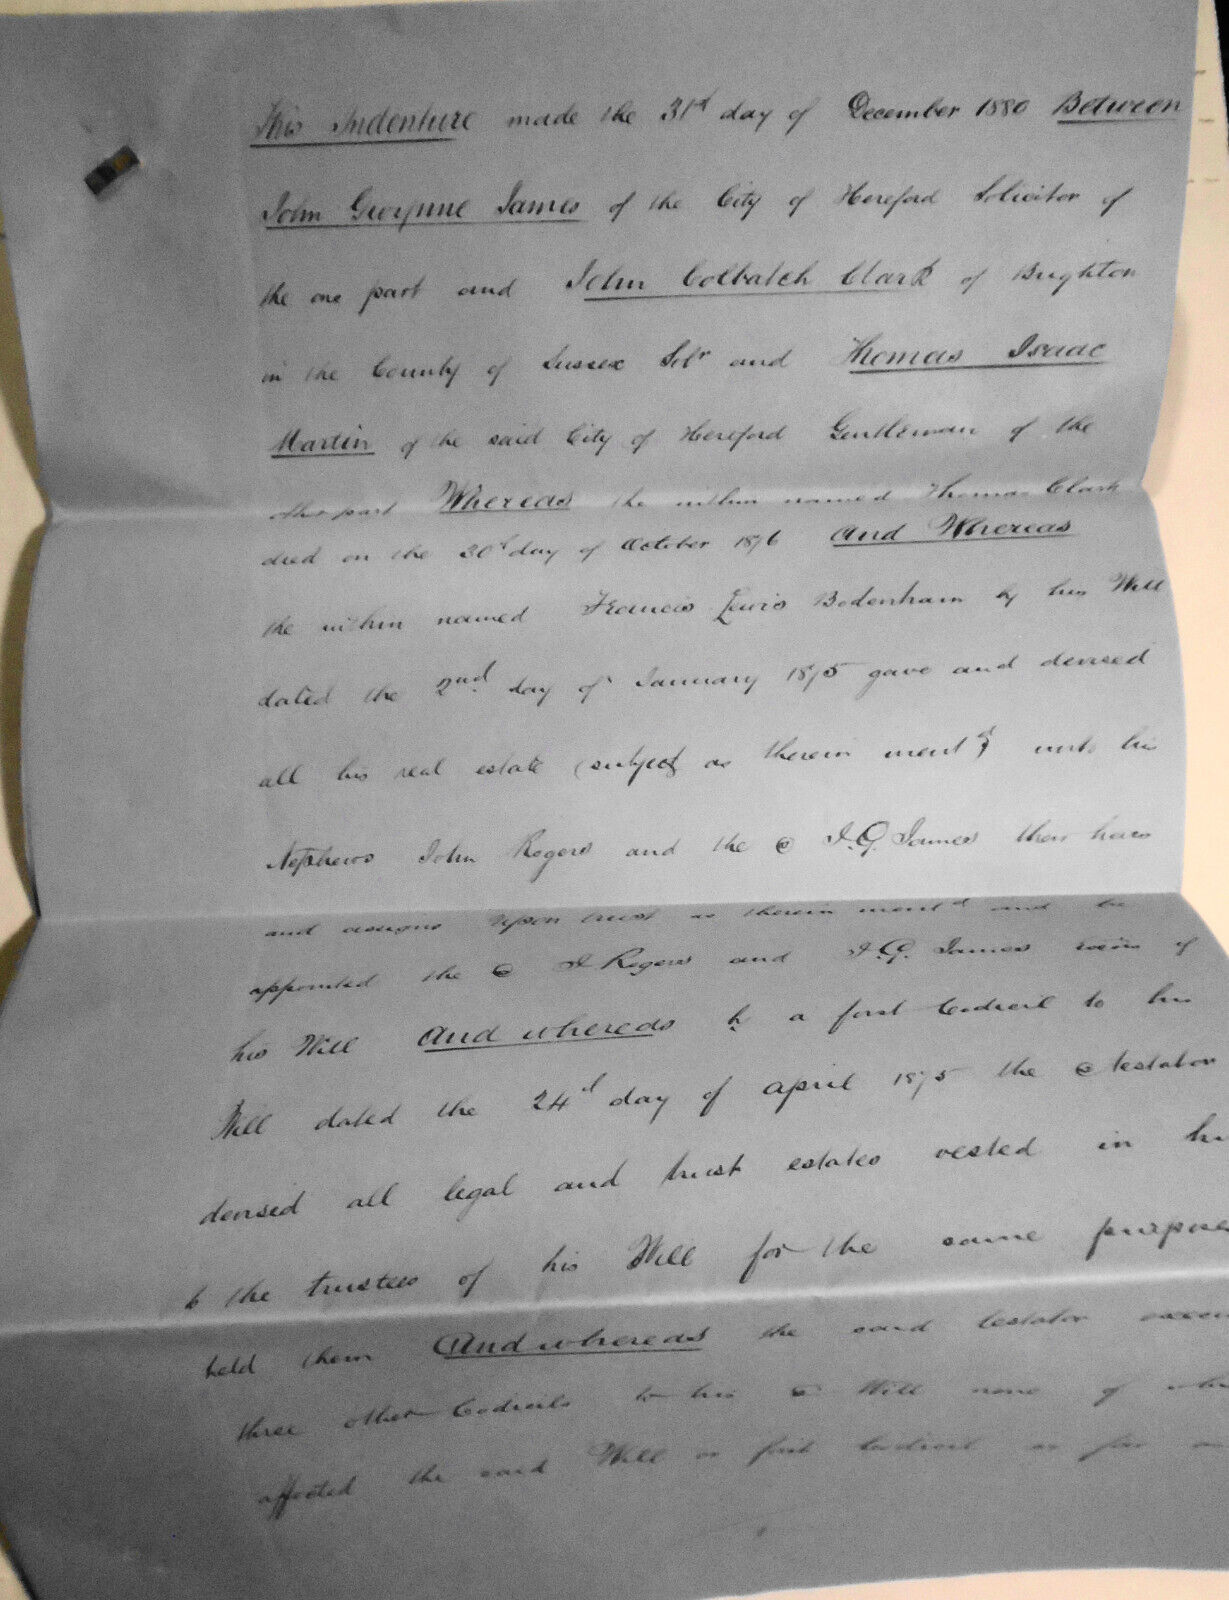 This Indenture made the 31st day of December 1880 Between
John Gwynne James of the City of Hereford Solicitor of
the one part and John Colbatch Clark of Brighton
in the County of Sussex Solr and Thomas Isaac
Martin of the said City of Hereford Gentleman of the
other part Whereas the within named Thomas Clark
died on the 30th day of October 1876 And Whereas
the within named Francis Lewis Bodenham by his Will
dated the 2nd day of January 1875 gave and devised
all his real estate (subject as therein mentd) unto his
Nephews John Rogers and the J.G. James their heirs
and assigns upon trust as therein mentd and he
appointed the J Rogers and J.G. James of
his Will And whereas by a first Codicil to his
Will dated the 24th day of April 1875 the testator
devised all legal and trust estates vested in
to the trustees of his Will for the same
held them And whereas the said testator
three other Codicils to his Will none of
affected the said Will or first Codicil so far